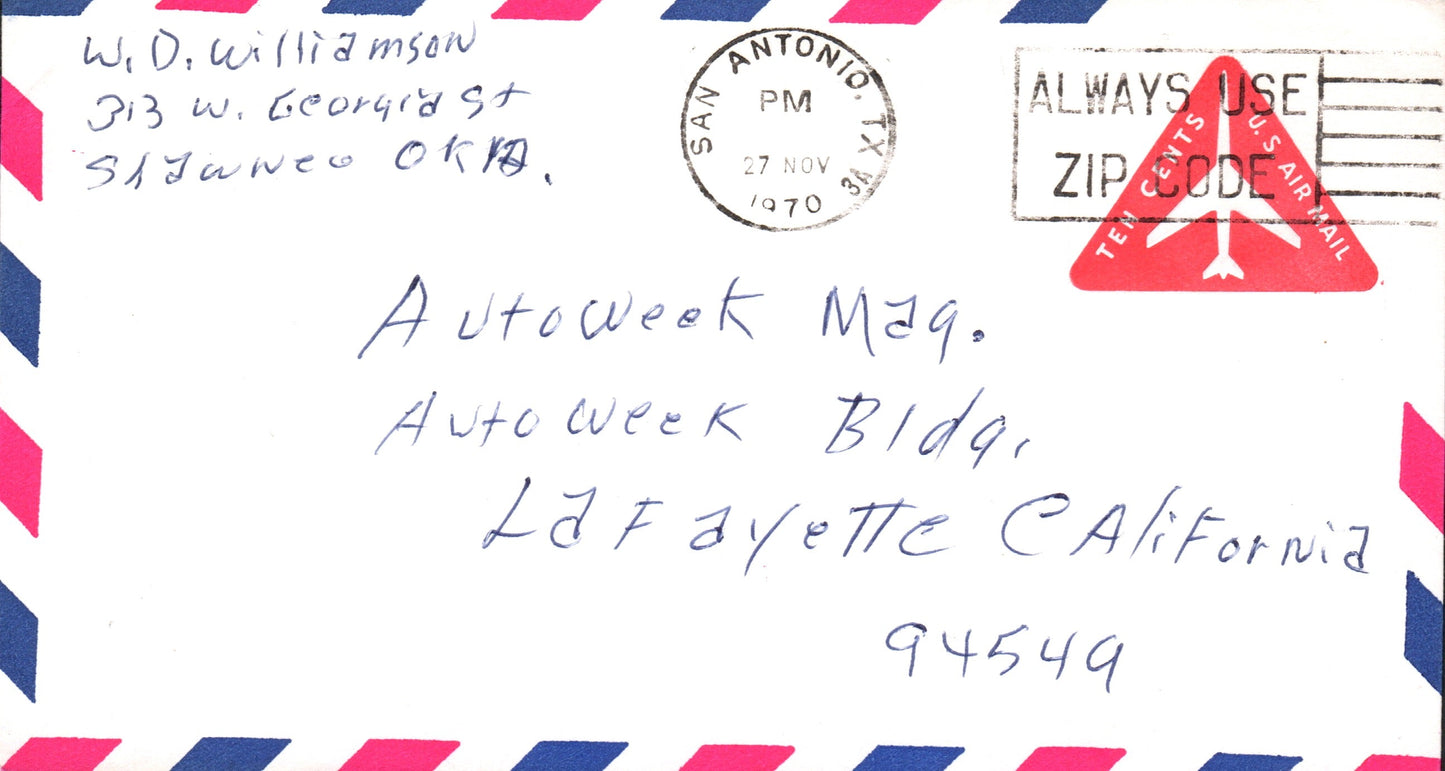 W. D. Williamson
313 W. Georgia St
OKLA.
SAN ANTONIO, TX
PM
27 NOV
1970
3A
ALWAYS USE
ZIP CODE
TEN CENTS
U.S. AIR MAIL
AutoWeek Mag.
AutoWeek Bldg.
LaFayette CAliFornia
94549